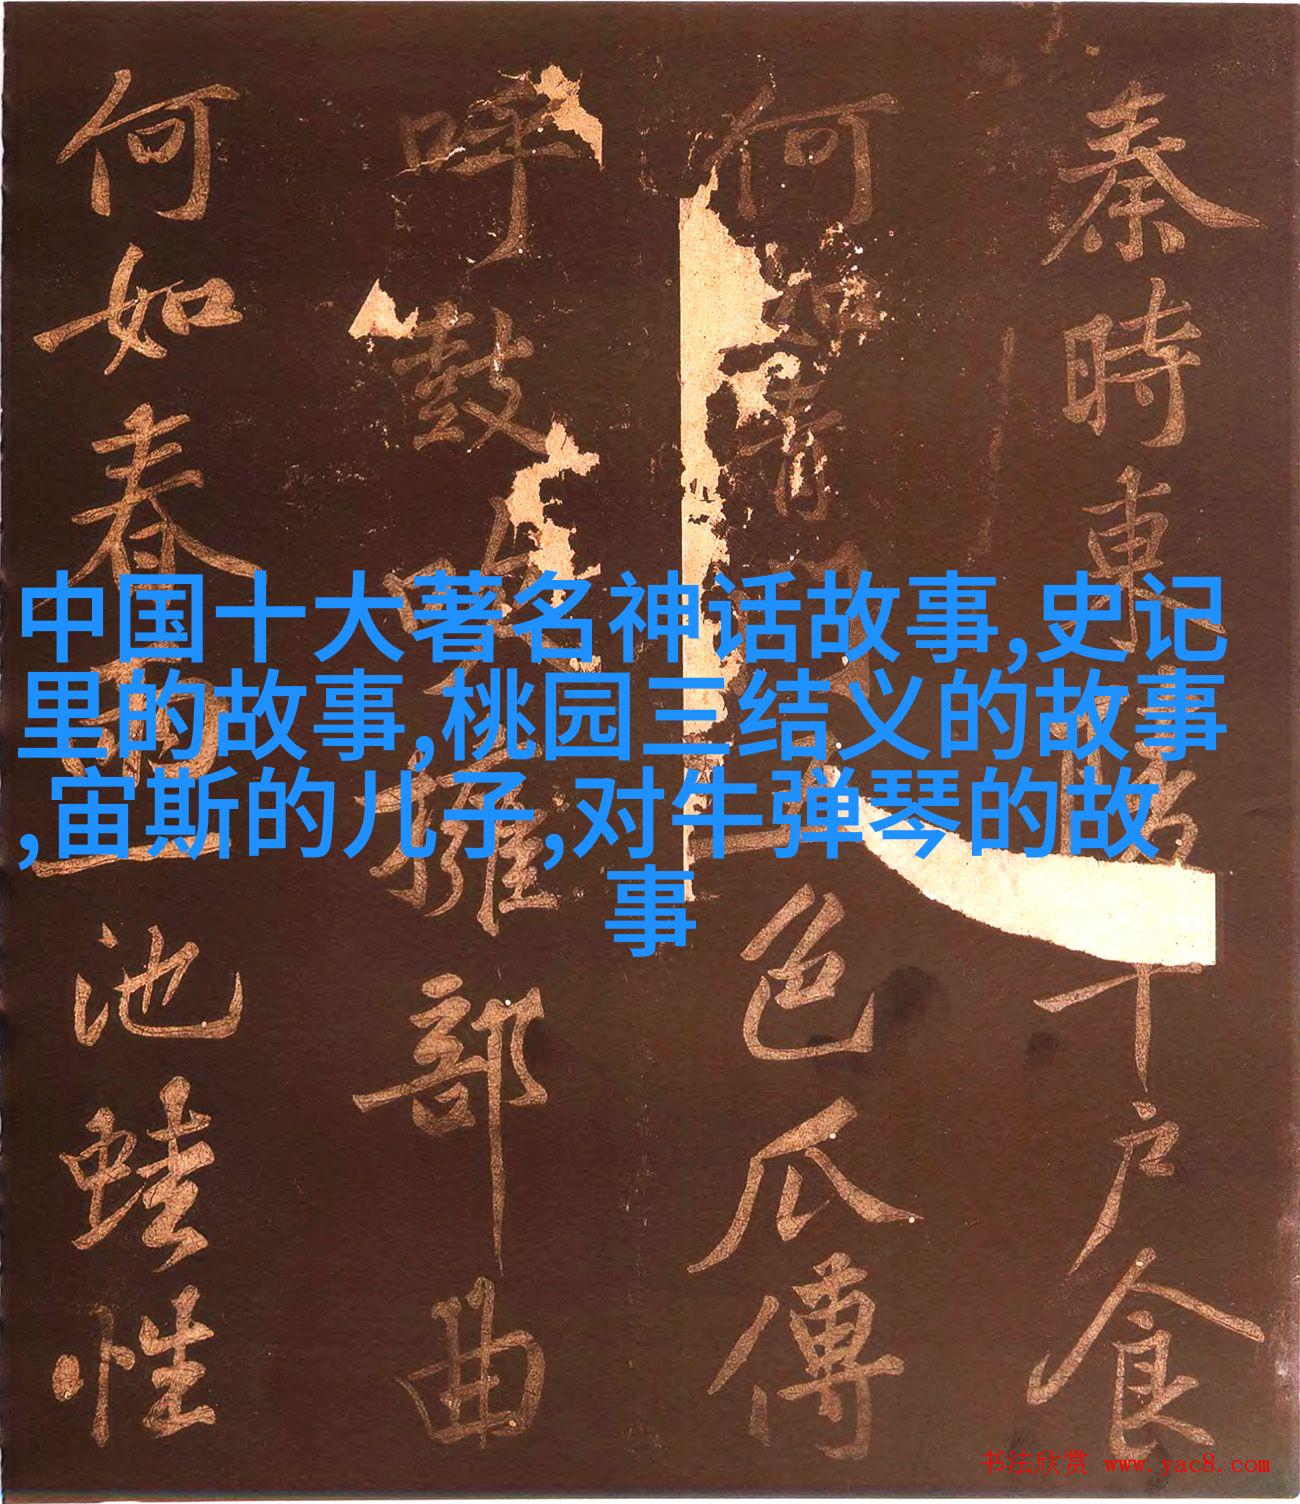 中国十大著名神话故事,史记
里的故事,桃园三结义的故事
,宙斯的儿子,对牛弹琴的故
事
秦時東千戶食
何如青色瓜傅
呼鼓吹擁部曲
何如春雨一池蛙性
书法欣赏 www.yac8.com